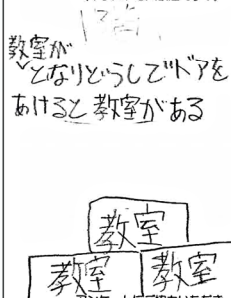 教室が
となりどうしでドアを
あけると教室がある
教室
教室 教室